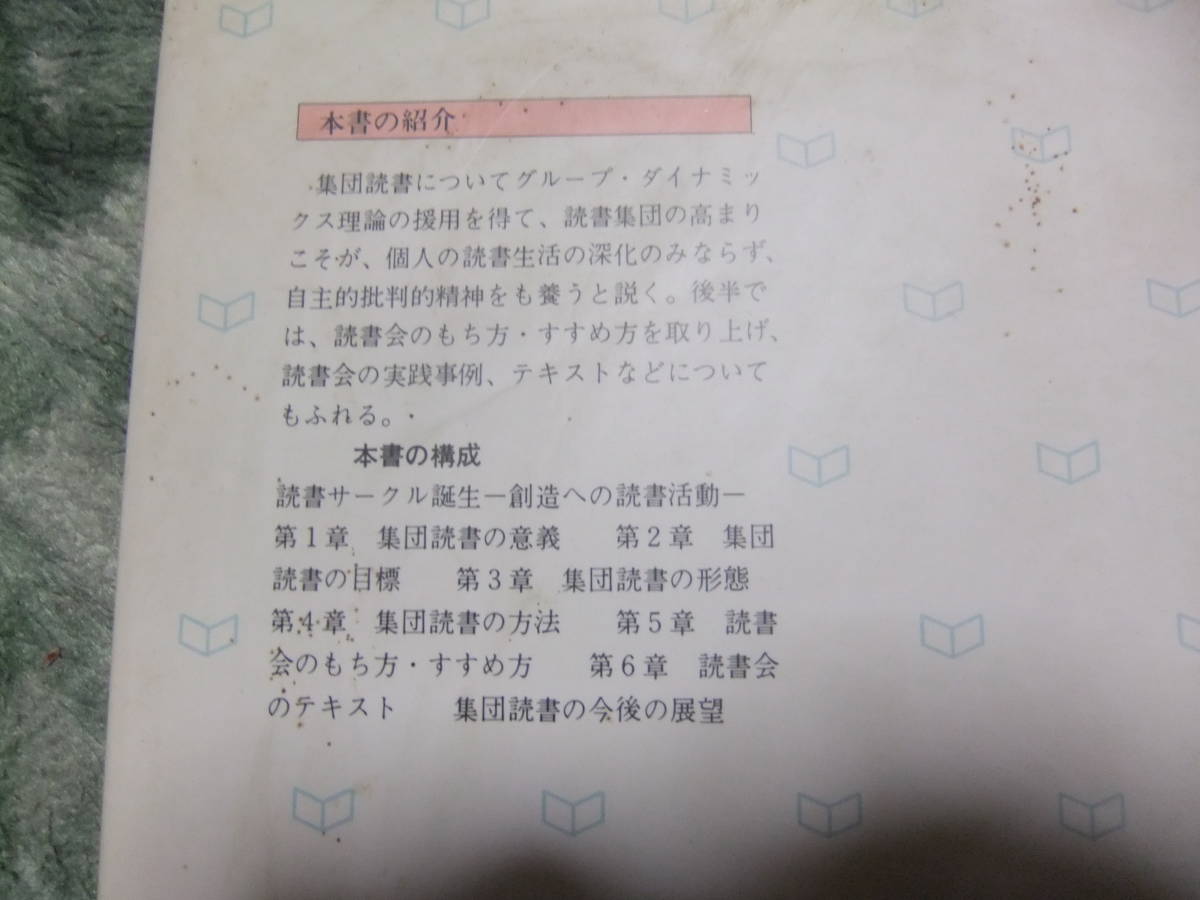 本書の紹介
集団読書についてグループ・ダイナミッ
クス理論の援用を得て、読書集団の高まり
こそが、個人の読書生活の深化のみならず、
自主的批判的精神をも養うと説く。後半で
は、読書会のもち方・すすめ方を取り上げ、
読書会の実践事例、テキストなどについて
もふれる。
本書の構成
読書サークル誕生―創造への読書活動―
第1章 集団読書の意義 第2章 集団
読書の目標 第3章 集団読書の形態
第4章 集団読書の方法 第5章 読書
会のもち方・すすめ方 第6章 読書会
のテキスト 集団読書の今後の展望